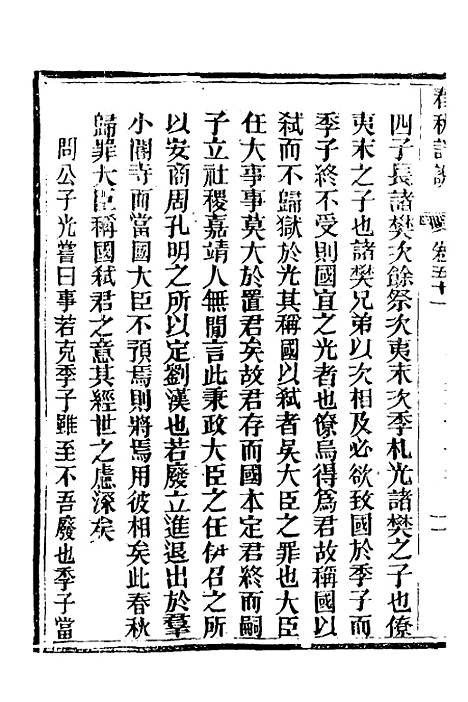 春秋詳說 卷五十一
四子長諸樊次餘祭次夷末次季札光諸樊之子也僚
夷末之子也諸樊兄弟以次相及必欲致國於季子而
季子終不受則國宜之光者也僚烏得爲君故稱國以
弑而不歸獄於光其稱國以弑者吳大臣之罪也大臣
任大事事莫大於置君矣故君存而國本定君終而嗣
子立社稷嘉靖人無閒言此秉政大臣之任伊召之所
以安商周孔明之所以定劉漢也若廢立進退出於羣
小閽寺而當國大臣不預焉則將焉用彼相矣此春秋
歸罪大臣稱國弑君之意其經世之慮深矣
問公子光嘗曰事若克季子雖至不吾廢也季子當